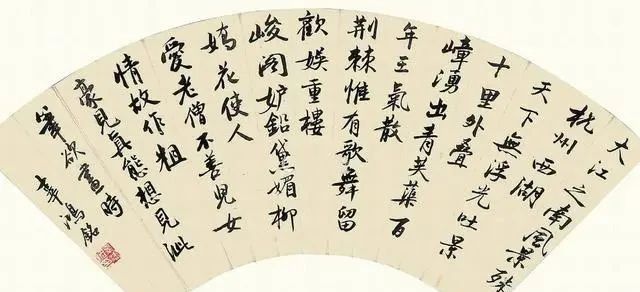 大江之南風景殊
杭州西湖
天下無浮光吐景
十里外疊
嶂湧出青芙蕖百
年王氣散
荆棘惟有歌舞留
歡娛重樓
峻閣妒鉛黛媚柳
嬌花使人
愛老僧不善兒女
情故作粗
豪見真態想見泚
筆欲畫時
辜鴻銘